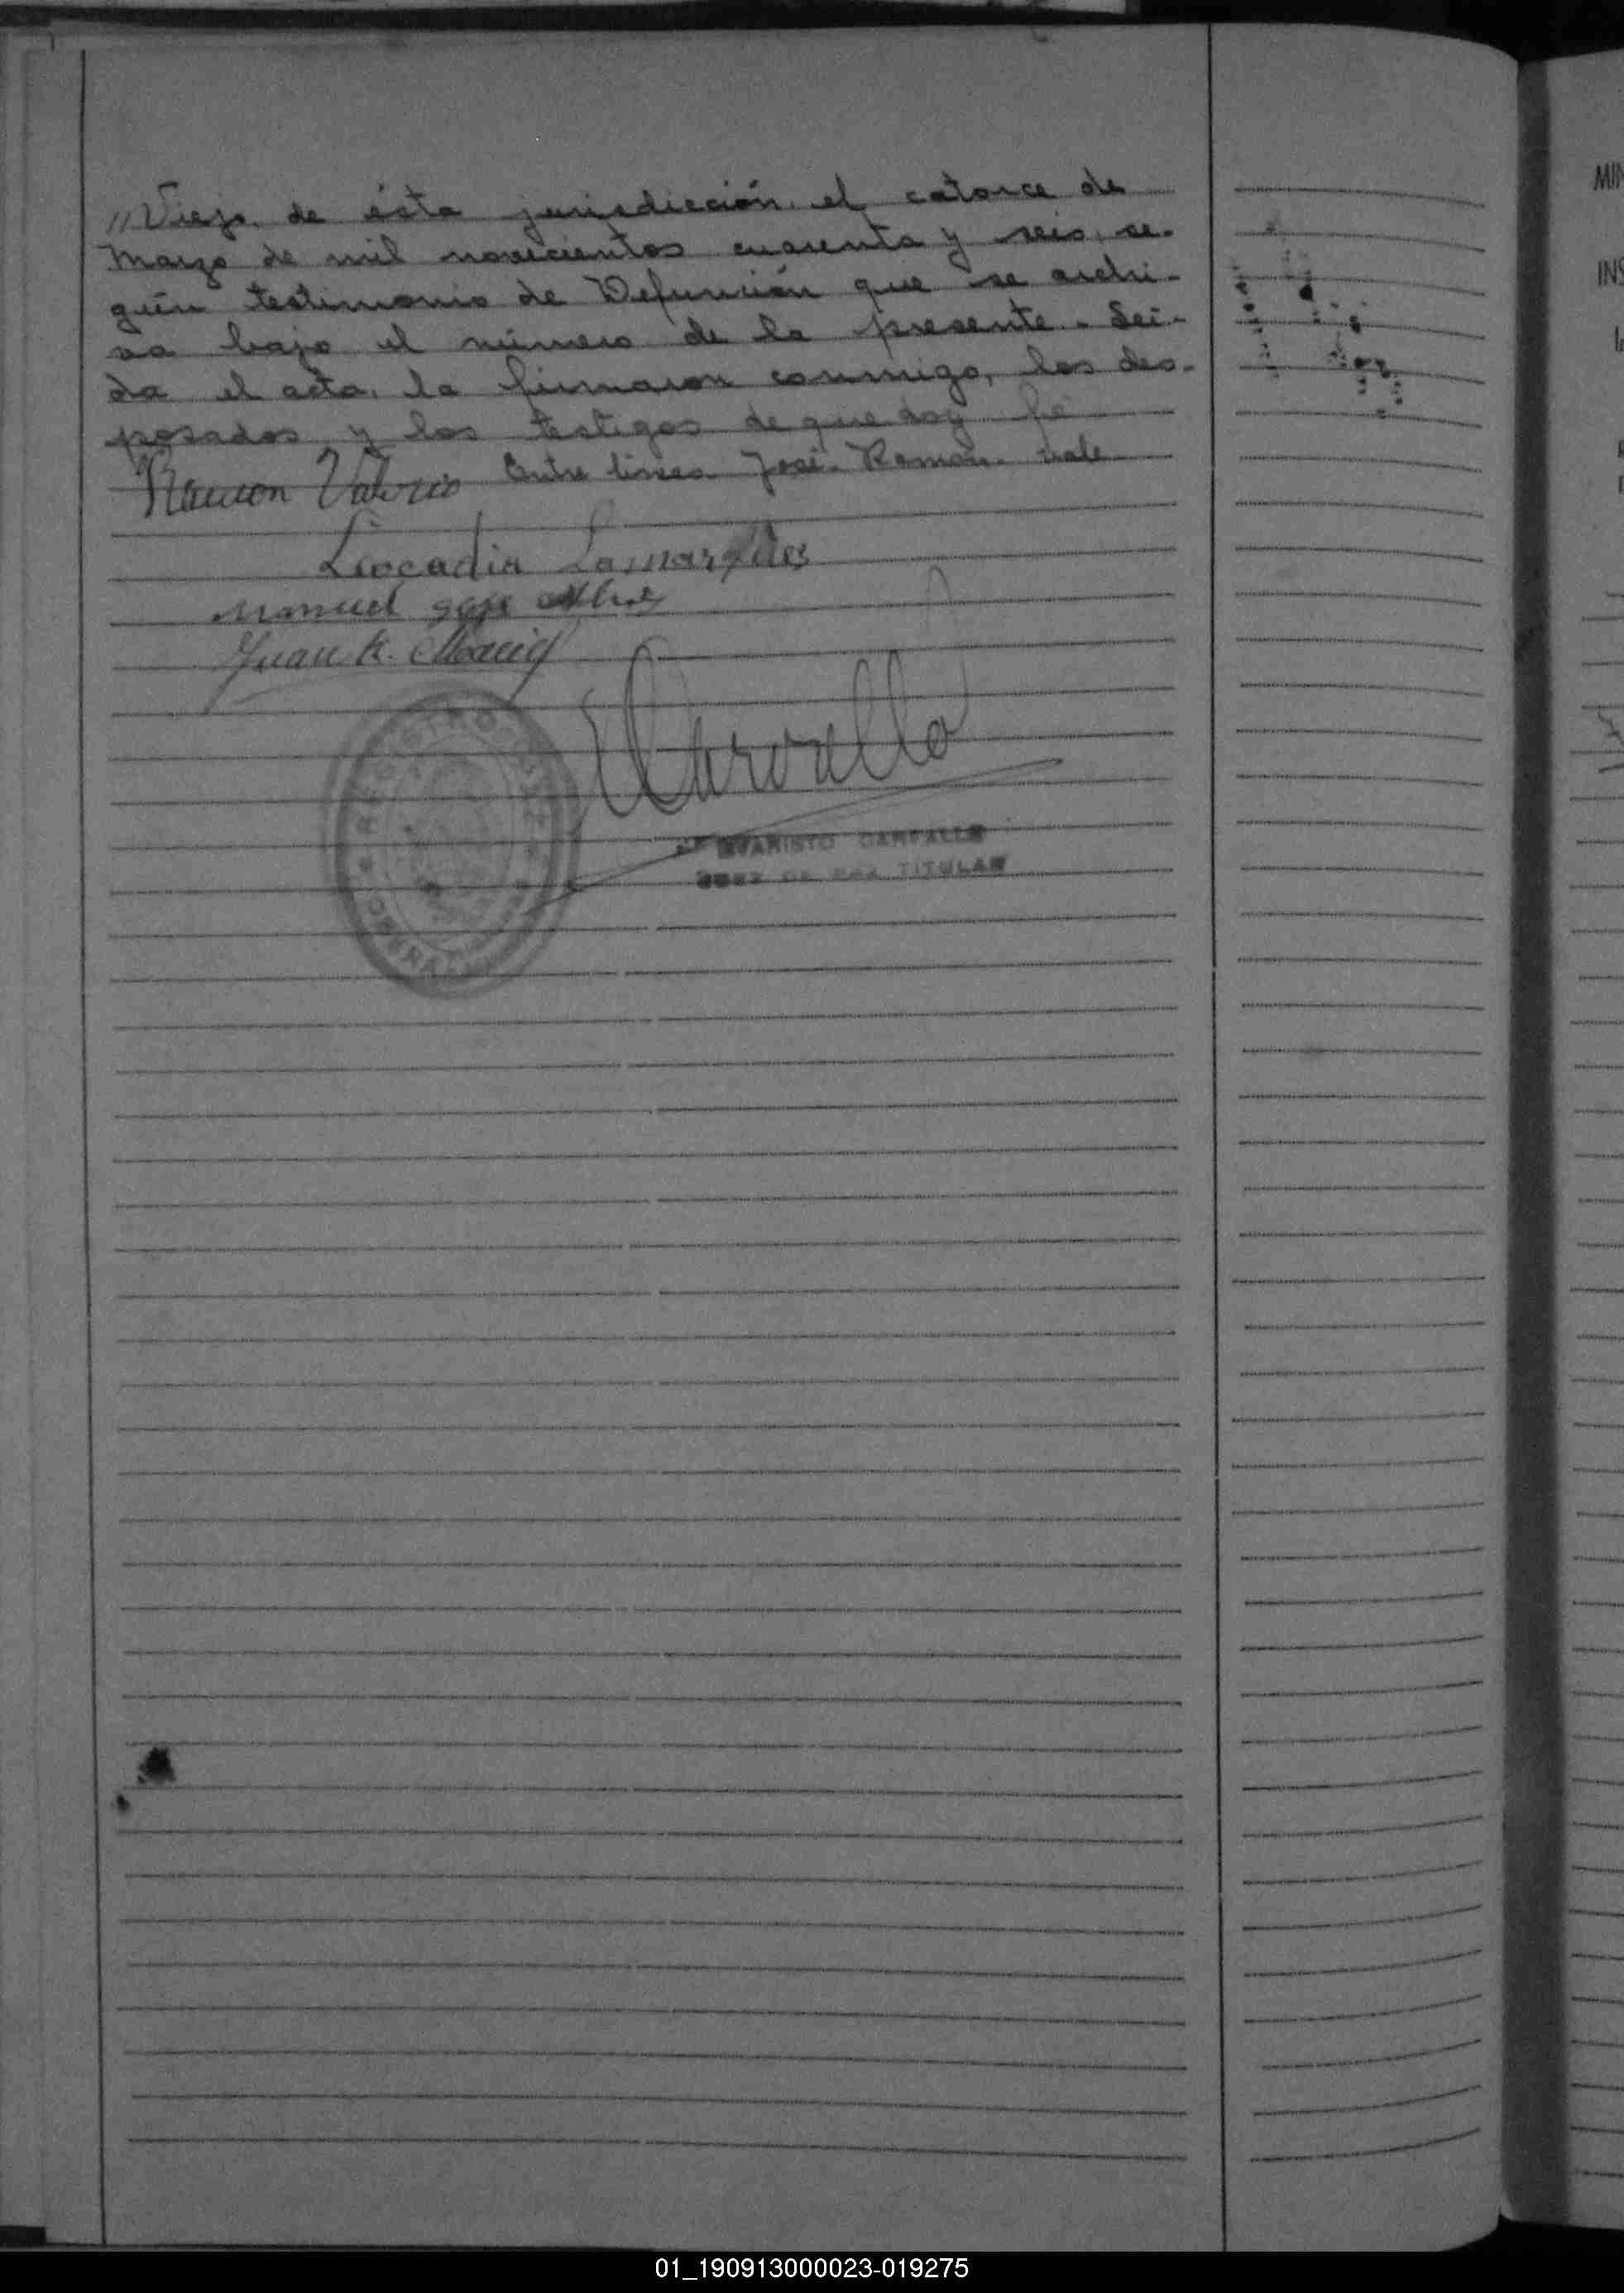 "Viejo. de ésta jurisdicción, el catorce de
Marzo de mil novecientos cuarenta y seis, se-
gún testimonio de Defunción que se archi-
va bajo el número de la presente. Leí-
da el acta, la firmaron conmigo, los des-
posados y los testigos de que doy fé
Entre lineas José. Ramón. vale
Ramon Valerio
Liocadia Lamarques
Manuel
Juan R.
REGISTRO
Carvallo
EVARISTO CARVALLO
JUEZ DE PAZ TITULAR
MIN
INS
01_190913000023-019275